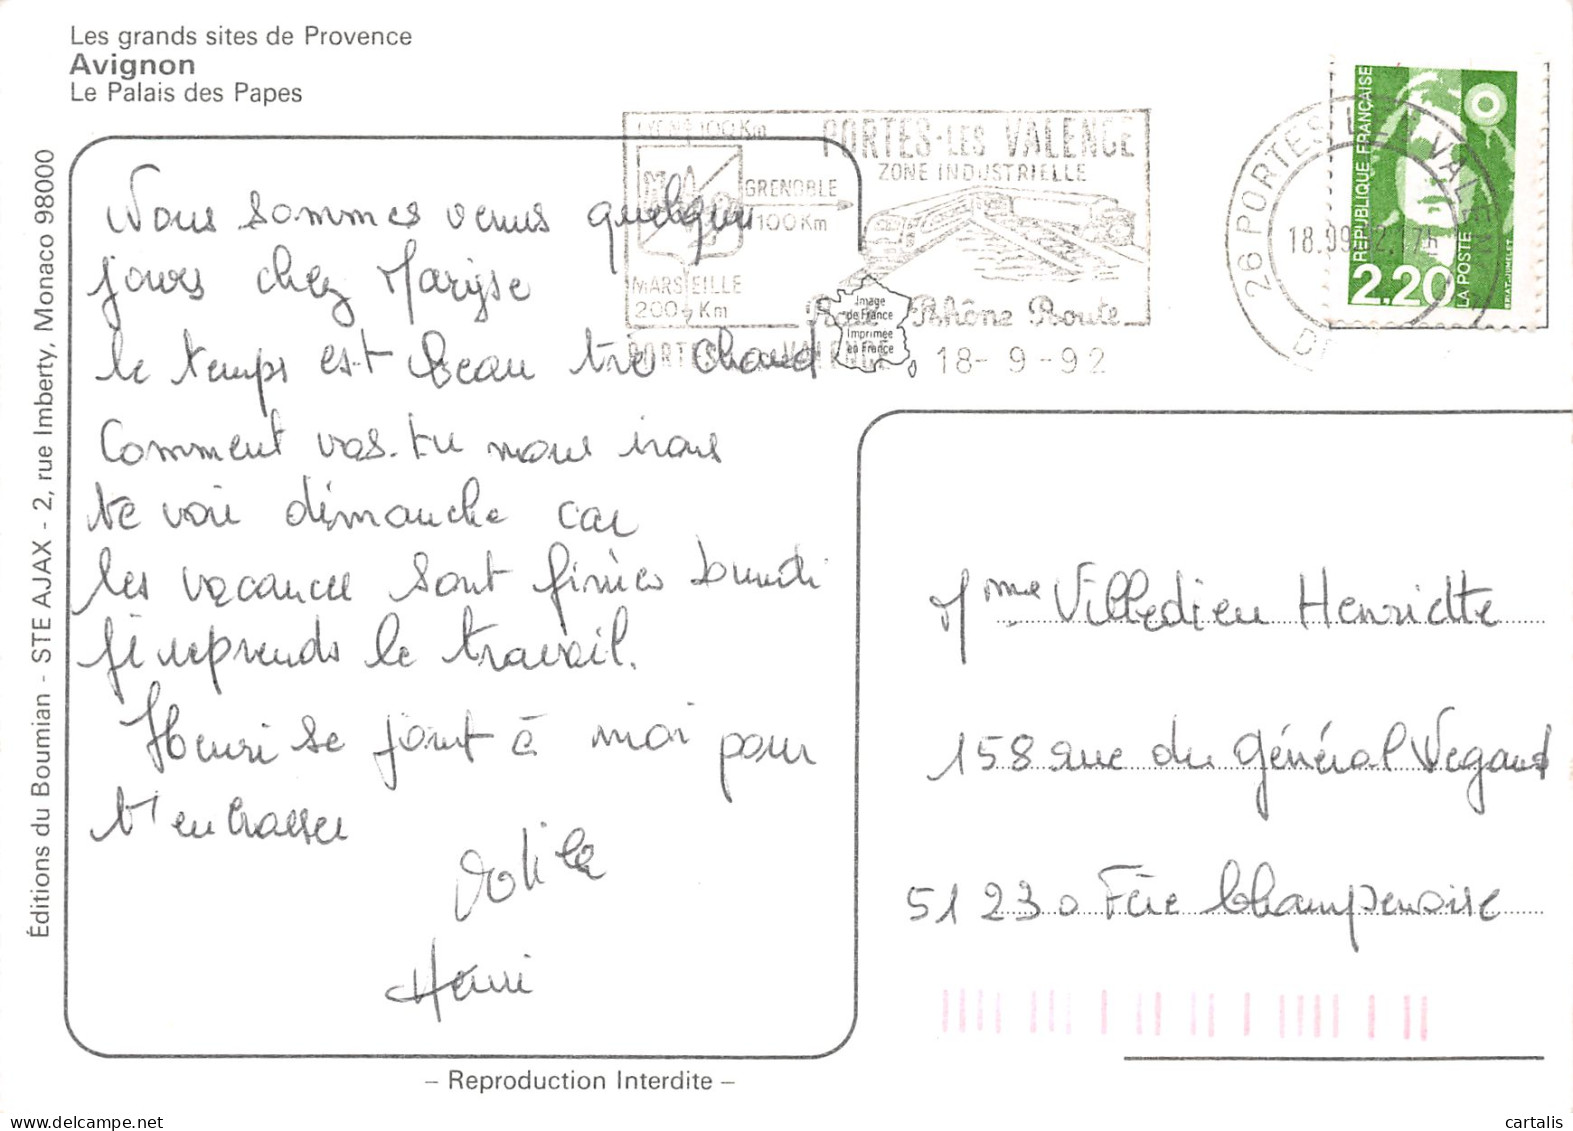 Les grands sites de Provence
Avignon
Le Palais des Papes
Éditions du Boumian - STE AJAX - 2, rue Imberty, Monaco 98000
Nous sommes venus quelques
jours chez Maryse
le temps est beau tre chaud
Comment vas-tu nous irons
te voir dimanche car
les vacances sont finies Lundi
je reprends le travail.
Henri se joint à moi pour
t'embrasser
Henri
100 Km
GRENOBLE
100 Km
MARSEILLE
200 Km
PORTES-LES VALENCE
ZONE INDUSTRIELLE
Rail Rhône Route
PORTES LES VALENCE
18-9-92
Image
de France
Imprimée
en France
26 PORTES LES VALENCE
REPUBLIQUE FRANÇAISE
2.20
LA POSTE
BRIAT-JUMELET
Mme Villedieu Henriette
158 rue du Général
51230 Fère Champenoise
– Reproduction Interdite –
cartalis